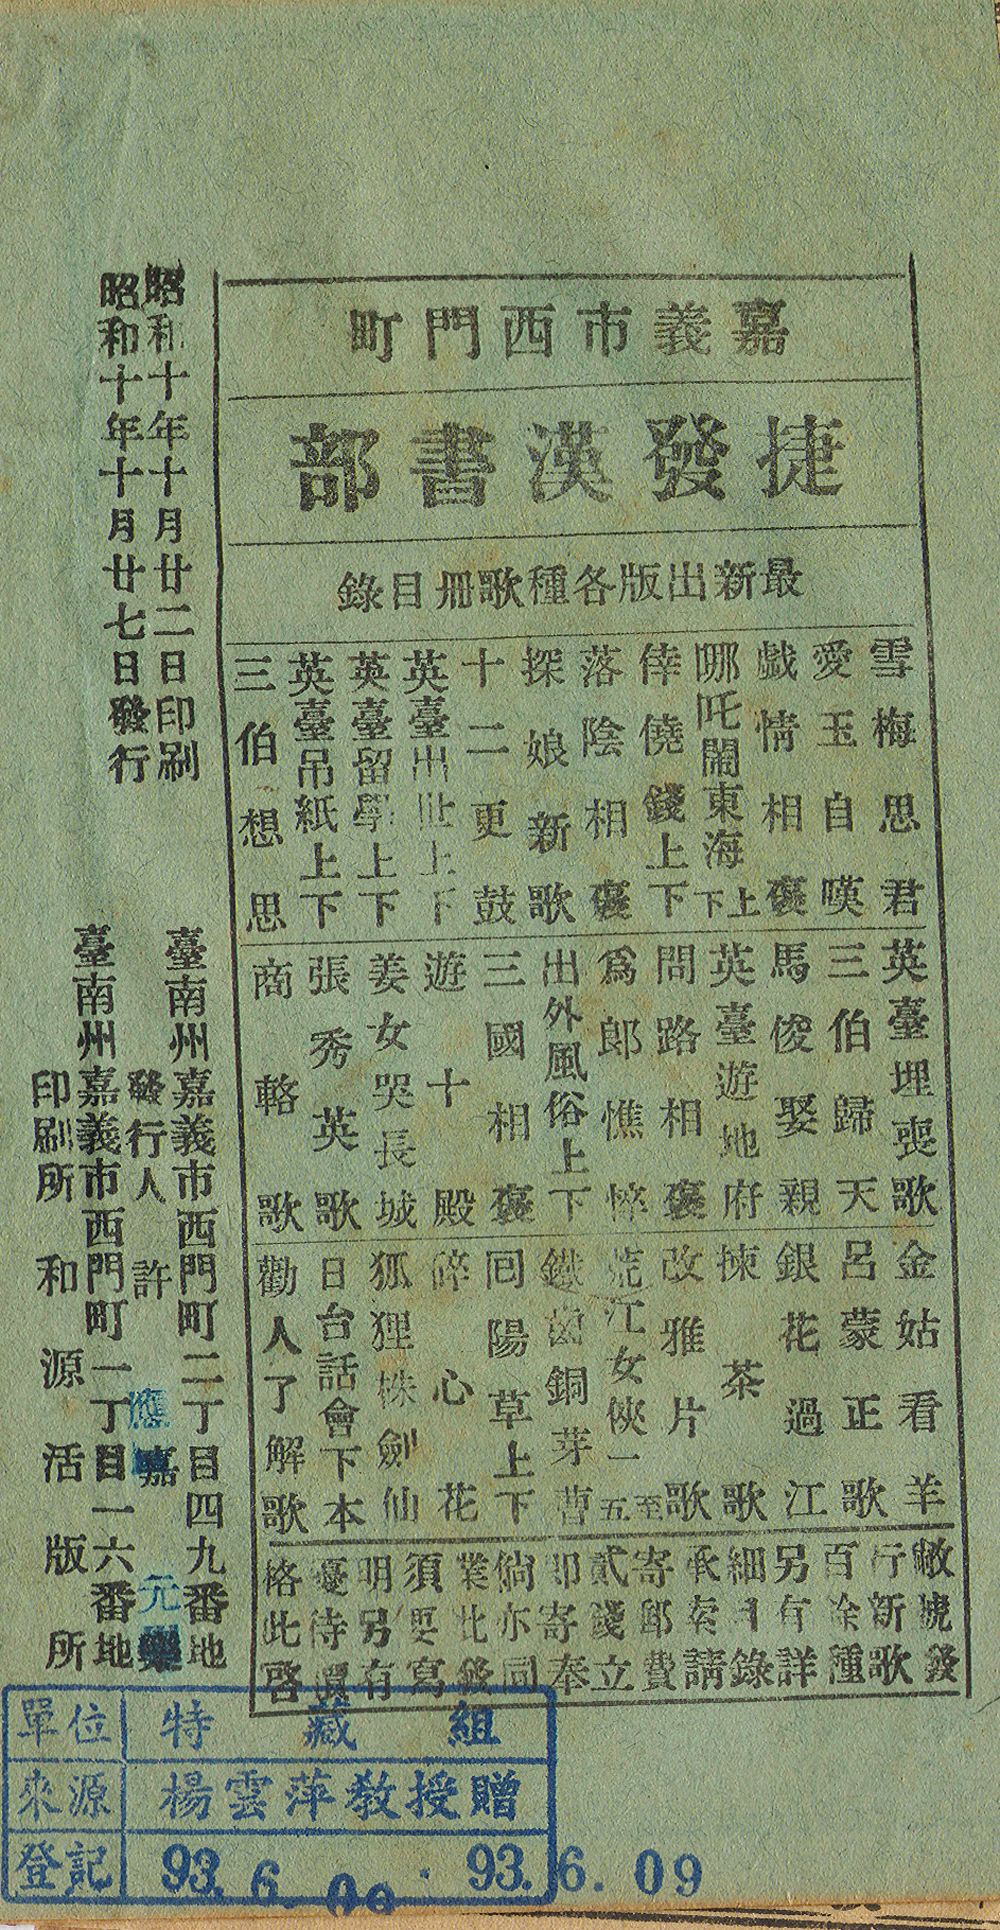 嘉義市西門町
捷發漢書部
最新出版各種歌冊目錄
雪梅思君
愛玉自嘆
戲情相褒
哪吒鬧東海上下
倖僥錢上下
落陰相褒
探娘新歌
十二更鼓
英臺出世上下
英臺留學上下
英臺吊紙上下
三伯想思
英臺埋喪歌
三伯歸天
馬俊娶親
英臺遊地府
問路相褒
為郎憔悴
出外風俗上下
三國相褒
遊十殿
姜女哭長城
張秀英歌
商輅歌
金姑看羊
呂蒙正歌
銀花過江
揀茶歌
改雅片歌
荒江女俠一至五
鐵齒銅芽曹
回陽草上下
碎心花
狐狸株劍仙
日台話會下本
勸人了解歌
敝號發
行新歌
百餘種
另有詳
細目錄
承索請
寄郵費
貳錢立
即寄奉
倘亦同
業此發
須要寫
明另有
憂待價
格此啓
昭和十年十月廿二日印刷
昭和十年十月廿七日發行
臺南州嘉義市西門町二丁目四九番地
發行人 許應元
臺南州嘉義市西門町一丁目一六番地
印刷所 和源活版所
單位 特藏組
來源 楊雲萍教授贈
登記 93.6.09 93.6.09